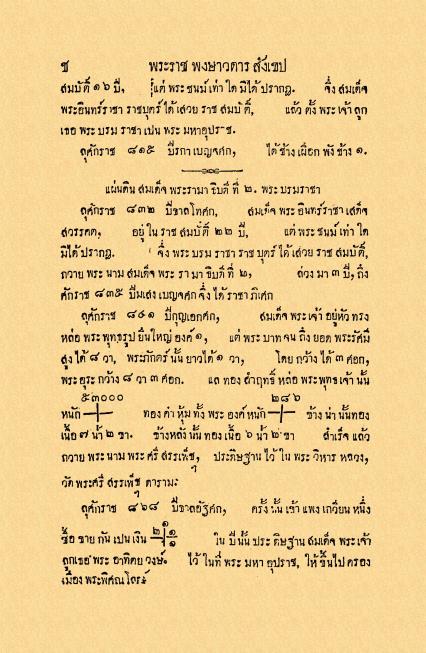 ช พระราช พงษาวดาร สังเขป
สมบัติ ๑๖ ปี, แต่ พระ ชนม์ เท่า ใด มิได้ ปรากฏ. จึ่ง สมเด็จ
พระอินทร์ราชา ราชบุตร์ ได้ เสวย ราช สมบัติ, แล้ว ตั้ง พระ เจ้า ลูก
เธอ พระ บรม ราชา เปน พระ มหาอุปราช.
ลุศักราช ๘๑๕ ปีรกา เบญจศก, ได้ ช้าง เผือก พัง ช้าง ๑.
แผ่นดิน สมเด็จ พระรามา ธิบดี ที่ ๒. พระ บรมราชา
ลุศักราช ๘๓๒ ปีขาลโทศก, สมเด็จ พระ อินทร์ราชา เสด็จ
สวรรคต, อยู่ ใน ราช สมบัติ ๒๒ ปี, แต่ พระ ชนม์ เท่า ใด
มิได้ ปรากฏ. จึ่ง พระ บรม ราชา ราช บุตร์ ได้ เสวย ราช สมบัติ,
ถวาย พระ นาม สมเด็จ พระ รา มา ธิบดี ที่ ๒, ล่วง มา ๓ ปี, ถึง
ศักราช ๘๓๕ ปีมเสง เบญจศก จึ่ง ได้ ราชา ภิเศก
ลุศักราช ๘๔๑ ปีกุญเอกศก, สมเด็จ พระ เจ้า อยู่หัว ทรง
หล่อ พระ พุทธรูป ยืนใหญ่ องค์ ๑, แต่ พระ บาท จน ถึง ยอด พระรัศมี
สูง ได้ ๘ วา, พระภักตร์ นั้น ยาวได้ ๑ วา, โดย กว้าง ได้ ๓ ศอก,
พระ อุระ กว้าง ๘ วา ๓ ศอก. แล ทอง สำฤทธิ์ หล่อ พระพุทธ เจ้า นั้น
๕๓๐๐๐ ๒๘๖
หนัก ทอง คำ หุ้ม ทั้ง พระ องค์ หนัก ข้าง น่า นั้นทอง
เนื้อ ๗ น้ำ ๒ ขา. ข้างหลัง นั้น ทอง เนื้อ ๖ น้ำ ๒ ขา สำเร็จ แล้ว
ถวาย พระ นาม พระ ศรี สรรเพ็ชุ, ประดิษฐาน ไว้ ใน พระ วิหาร หลวง,
วัด พระศรี สรรเพ็ชุ ดาราม
ลุศักราช ๘๖๘ ปีขาลอัฐศก, ครั้ง นั้น เข้า แพง เกวียน หนึ่ง
ซื้อ ขาย กัน เปน เงิน ๒ ๑ ๑ ๑ ใน ปี นั้น ประ ดิษฐาน สมเด็จ พระเจ้า
ลูกเธอ พระ อาทิตย วงษ์. ไว้ ในที่ พระ มหา อุปราช, ให้ ขึ้นไป ครอง
เมือง พระพิศณุโลกย์